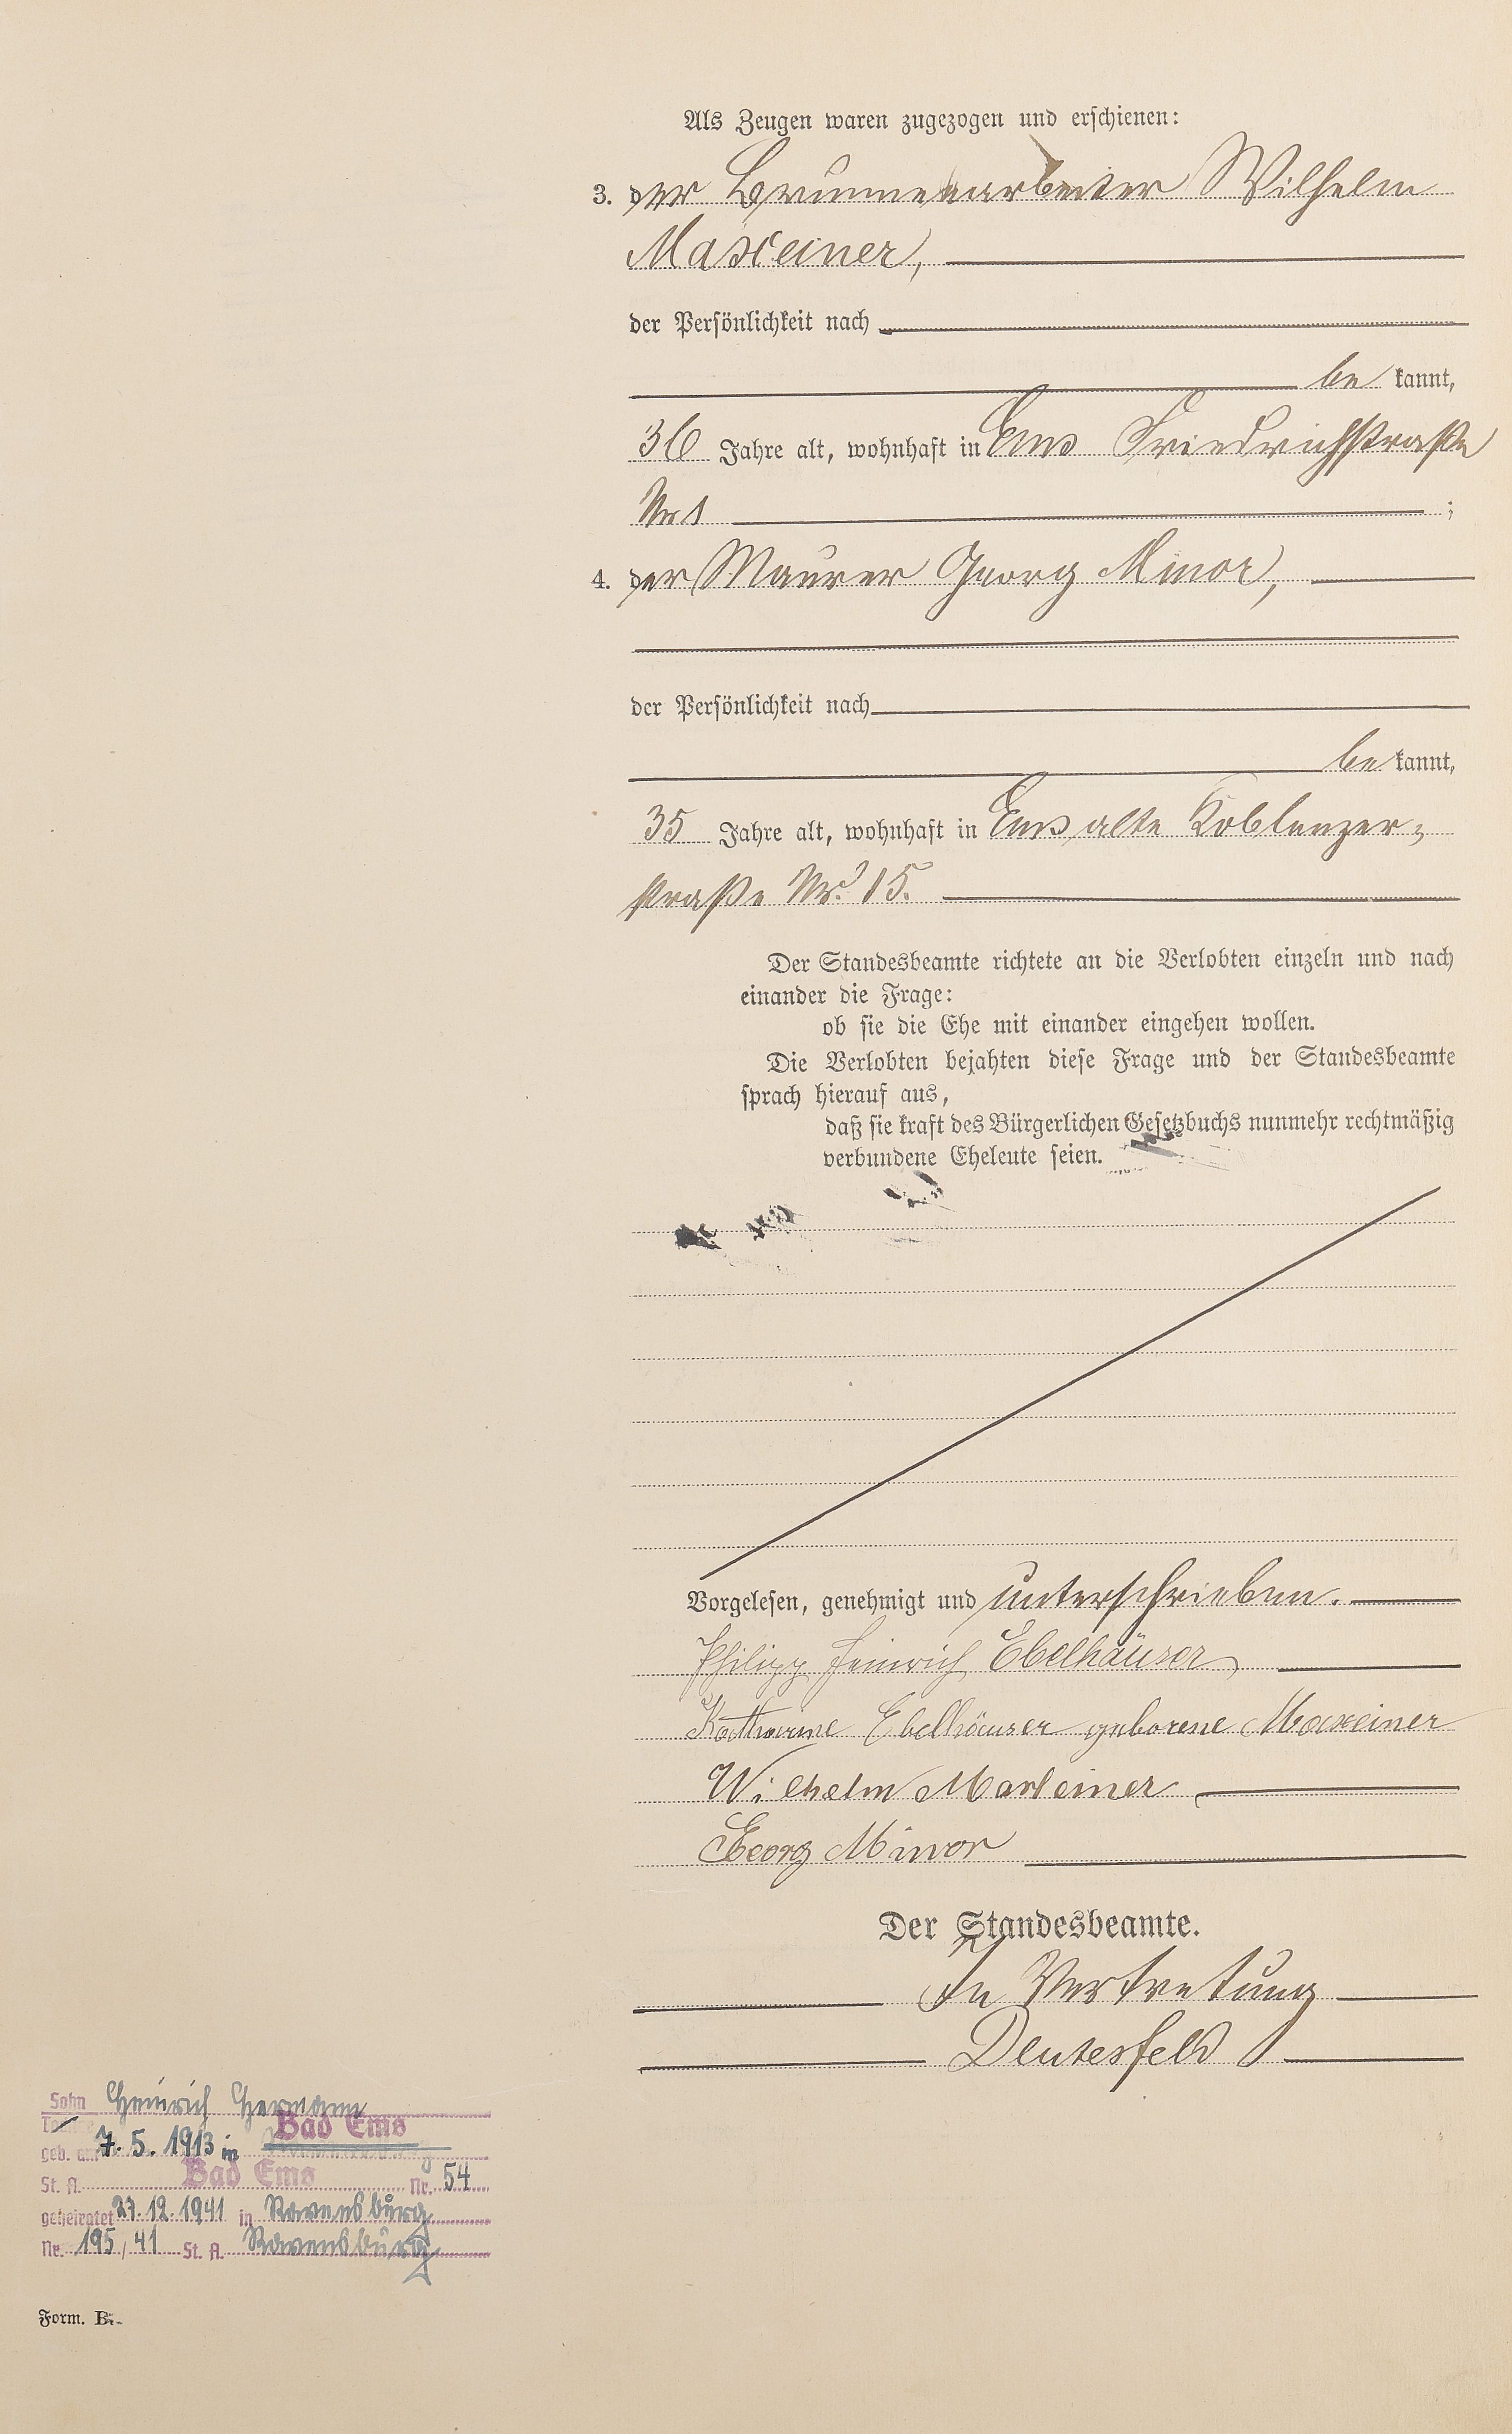 Als Zeugen waren zugezogen und erschienen:
3. der Brunnenarbeiter Wilhelm
Maxeiner,
der Persönlichkeit nach
be kannt,
36 Jahre alt, wohnhaft in Ems Friedrichstraße
Nr 1 ;
4. der Maurer Georg Minor,
der Persönlichkeit nach
be kannt,
35 Jahre alt, wohnhaft in Ems alte Koblenzer-
straße Nr. 15.
Der Standesbeamte richtete an die Verlobten einzeln und nach
einander die Frage:
ob sie die Ehe mit einander eingehen wollen.
Die Verlobten bejahten diese Frage und der Standesbeamte
sprach hierauf aus,
daß sie kraft des Bürgerlichen Gesetzbuchs nunmehr rechtmäßig
verbundene Eheleute seien.
Vorgelesen, genehmigt und unterschrieben.
Philipp Heinrich Ebelhäuser
Katharine Ebelhäuser geborene Maxeiner
Wilhelm Maxeiner
Georg Minor
Der Standesbeamte.
In Vertretung
Deutesfeld
Sohn Heinrich Hermann
geb. am 7. 5. 1913 in Bad Ems
St. A. Bad Ems Nr. 54
geheiratet 27.12.1941 in Ravensburg
Nr. 195/41 St. A. Ravensburg
Form. B.